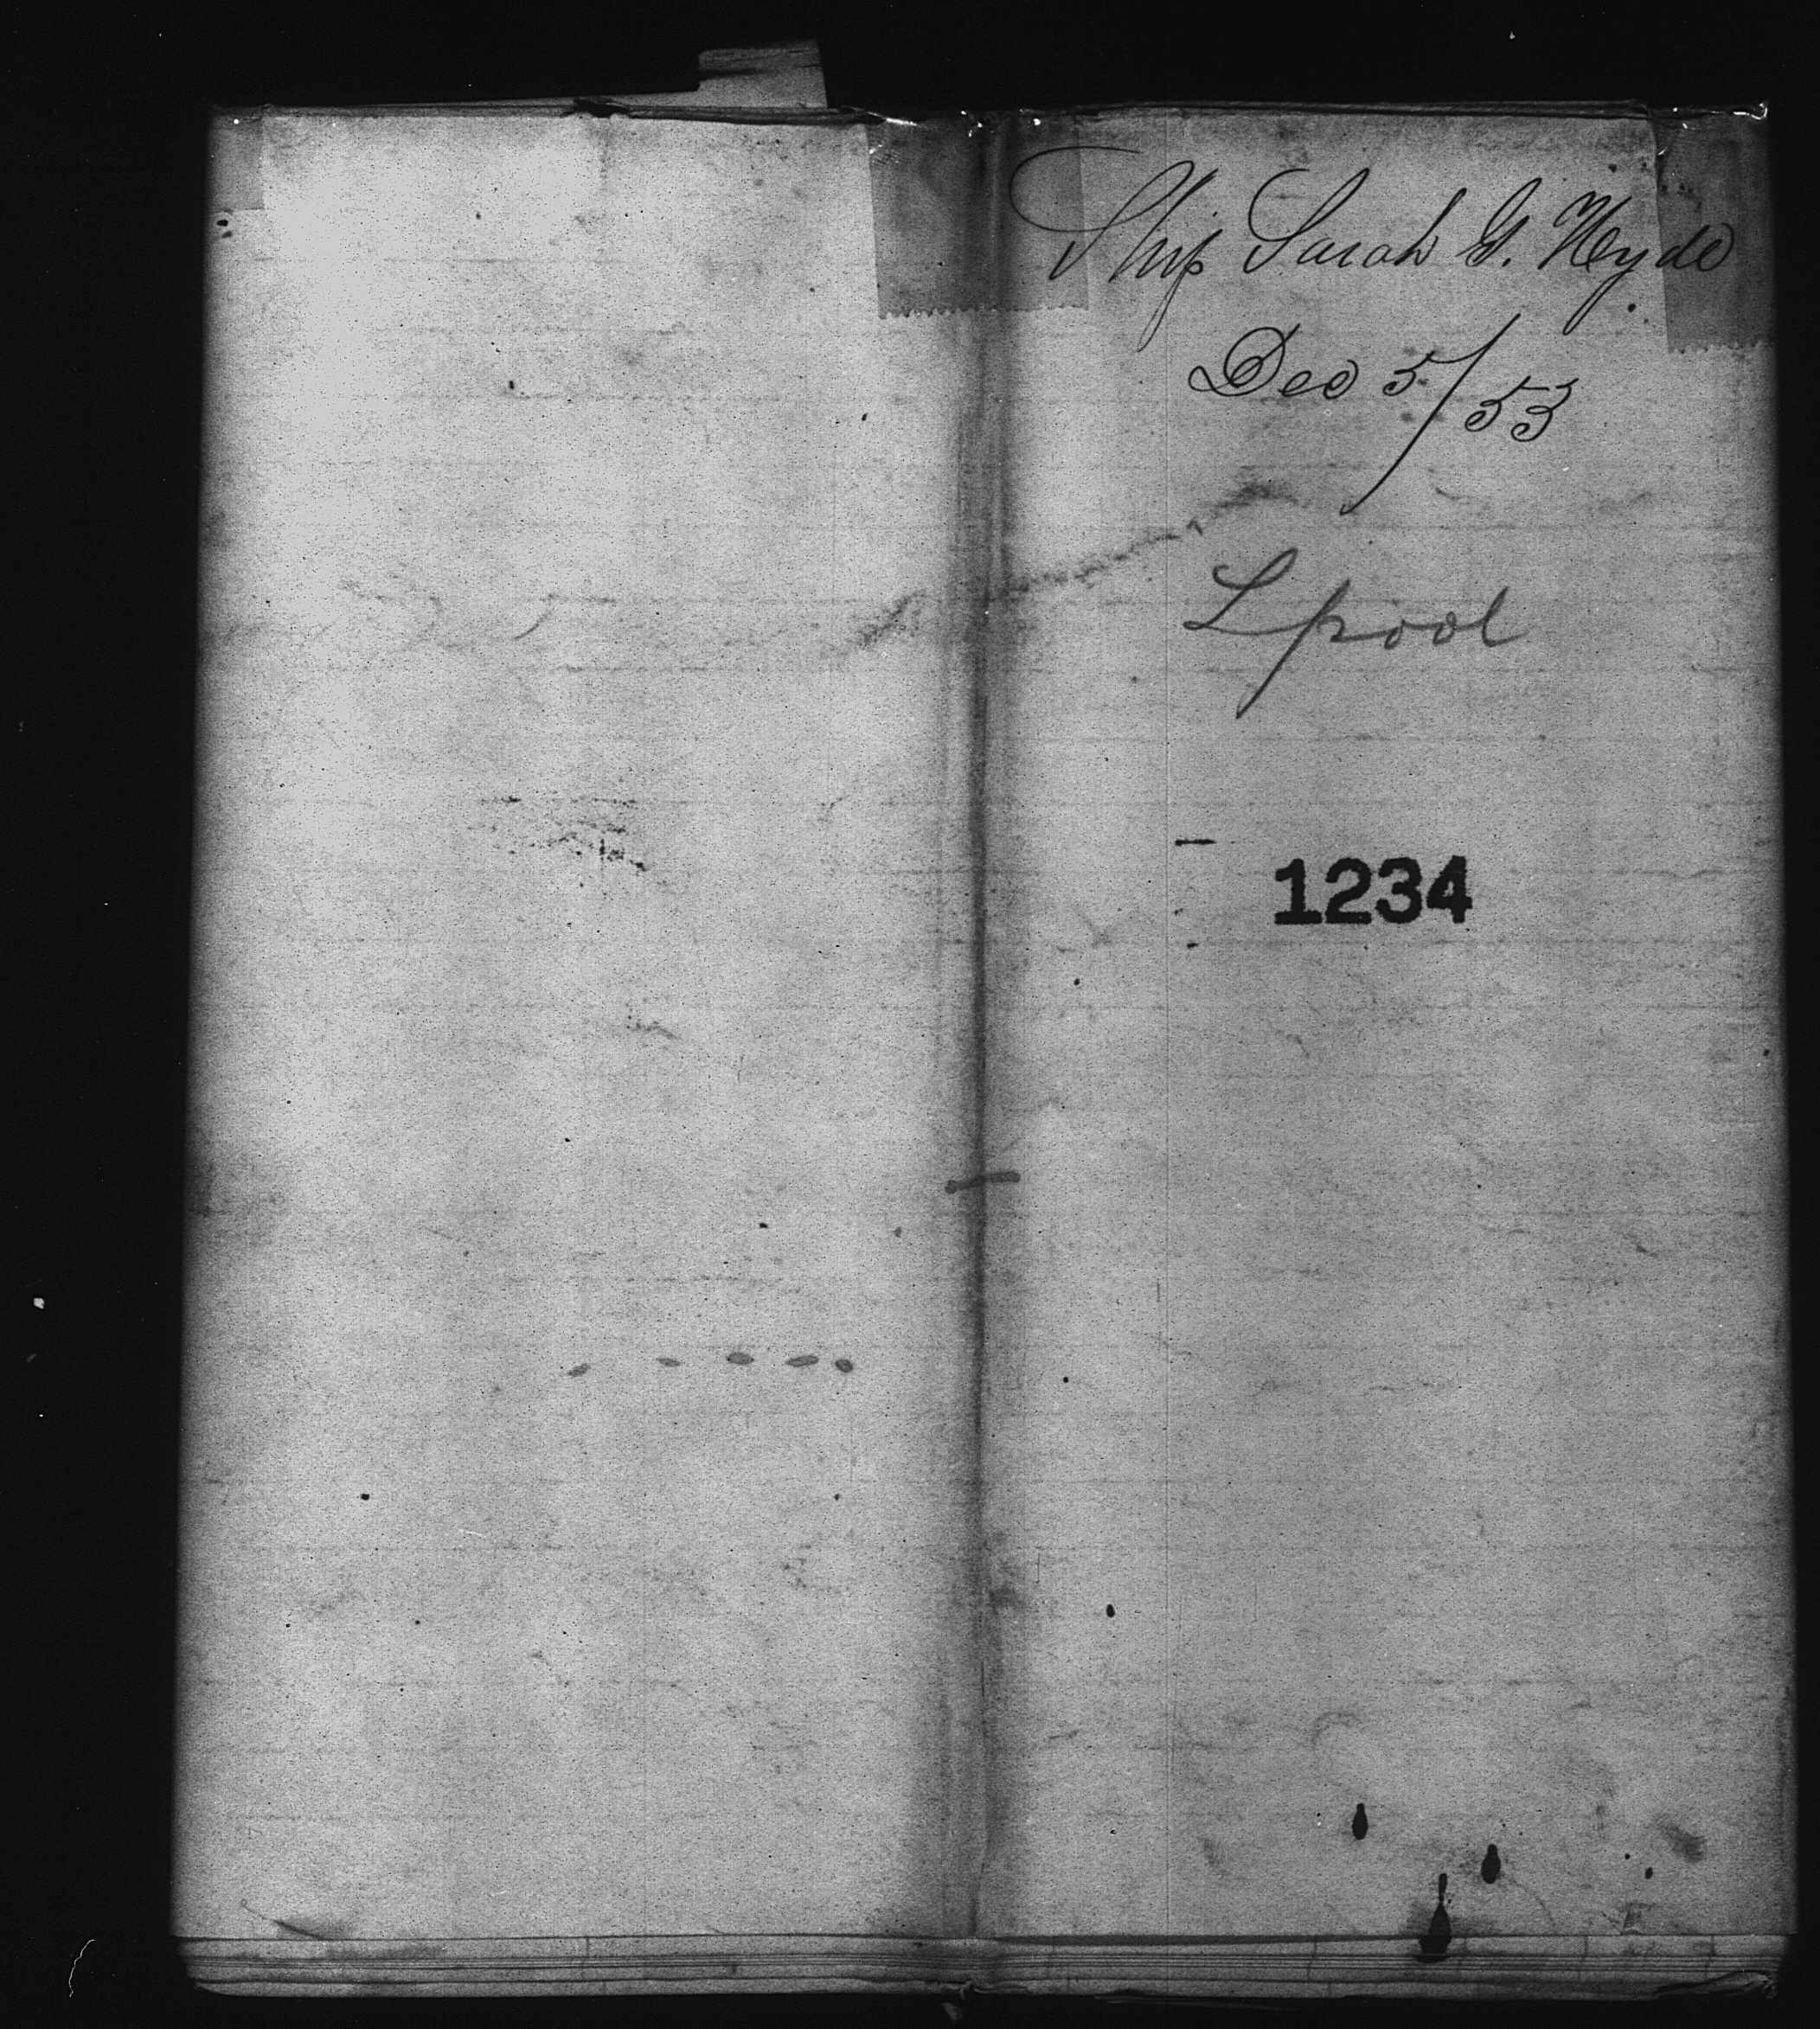 Ship Sarah G. Hyde
Dec 5/53
Lpool
1234